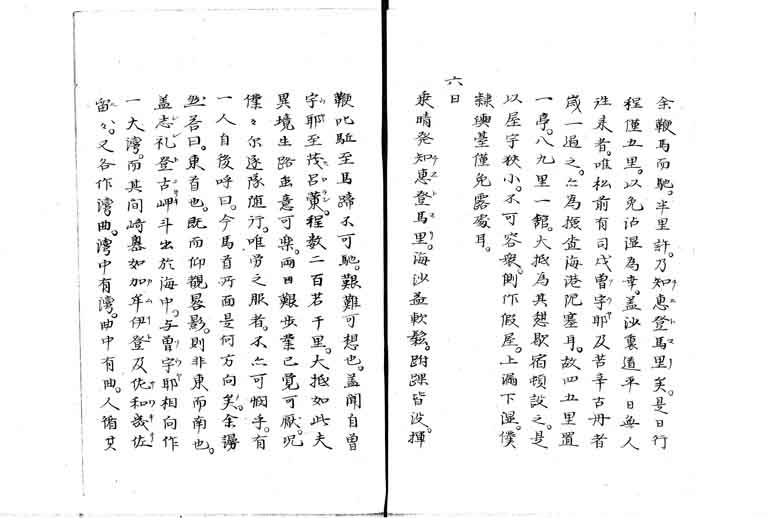 余鞭馬而馳。半里許。乃知恵登馬里矣。是日行
程僅五里。以免沾湿為幸。盖沙裏道平日無人
往来者。唯松前有司戍曽宇耶及苦辛古丹者
歳一過之。亦為撿査海港阨塞耳。故四五里置
一亭。八九里一館。大抵為其憩歇宿頓設之。是
以屋宇狭小。不可容衆。側作假屋。上漏下湿。僕
隷輿䑓僅免露處耳。
六日
乗晴発知恵登馬里。海沙益軟鬆。跗踝皆没。揮
鞭叱駈至馬蹄不可馳。艱難可想也。盖聞自曽
宇耶至茂呂蘭。程数二百若干里。大抵如此夫
異境生路無意可楽。両日艱歩業已覚可厭。况
僕々尔逐隊随行。唯労之服者。不亦可憫乎。有
一人自後呼曰。今馬首所面是何方向矣。余謾
然答曰。東首也。既而仰観晷影。則非東而南也。
盖志礼登古岬斗出於海中。与曽宇耶相向作
一大湾。而其間﨑嶴如加牟伊登及佐和幾佐
留々。又各作湾曲。湾中有湾。曲中有曲。人循其